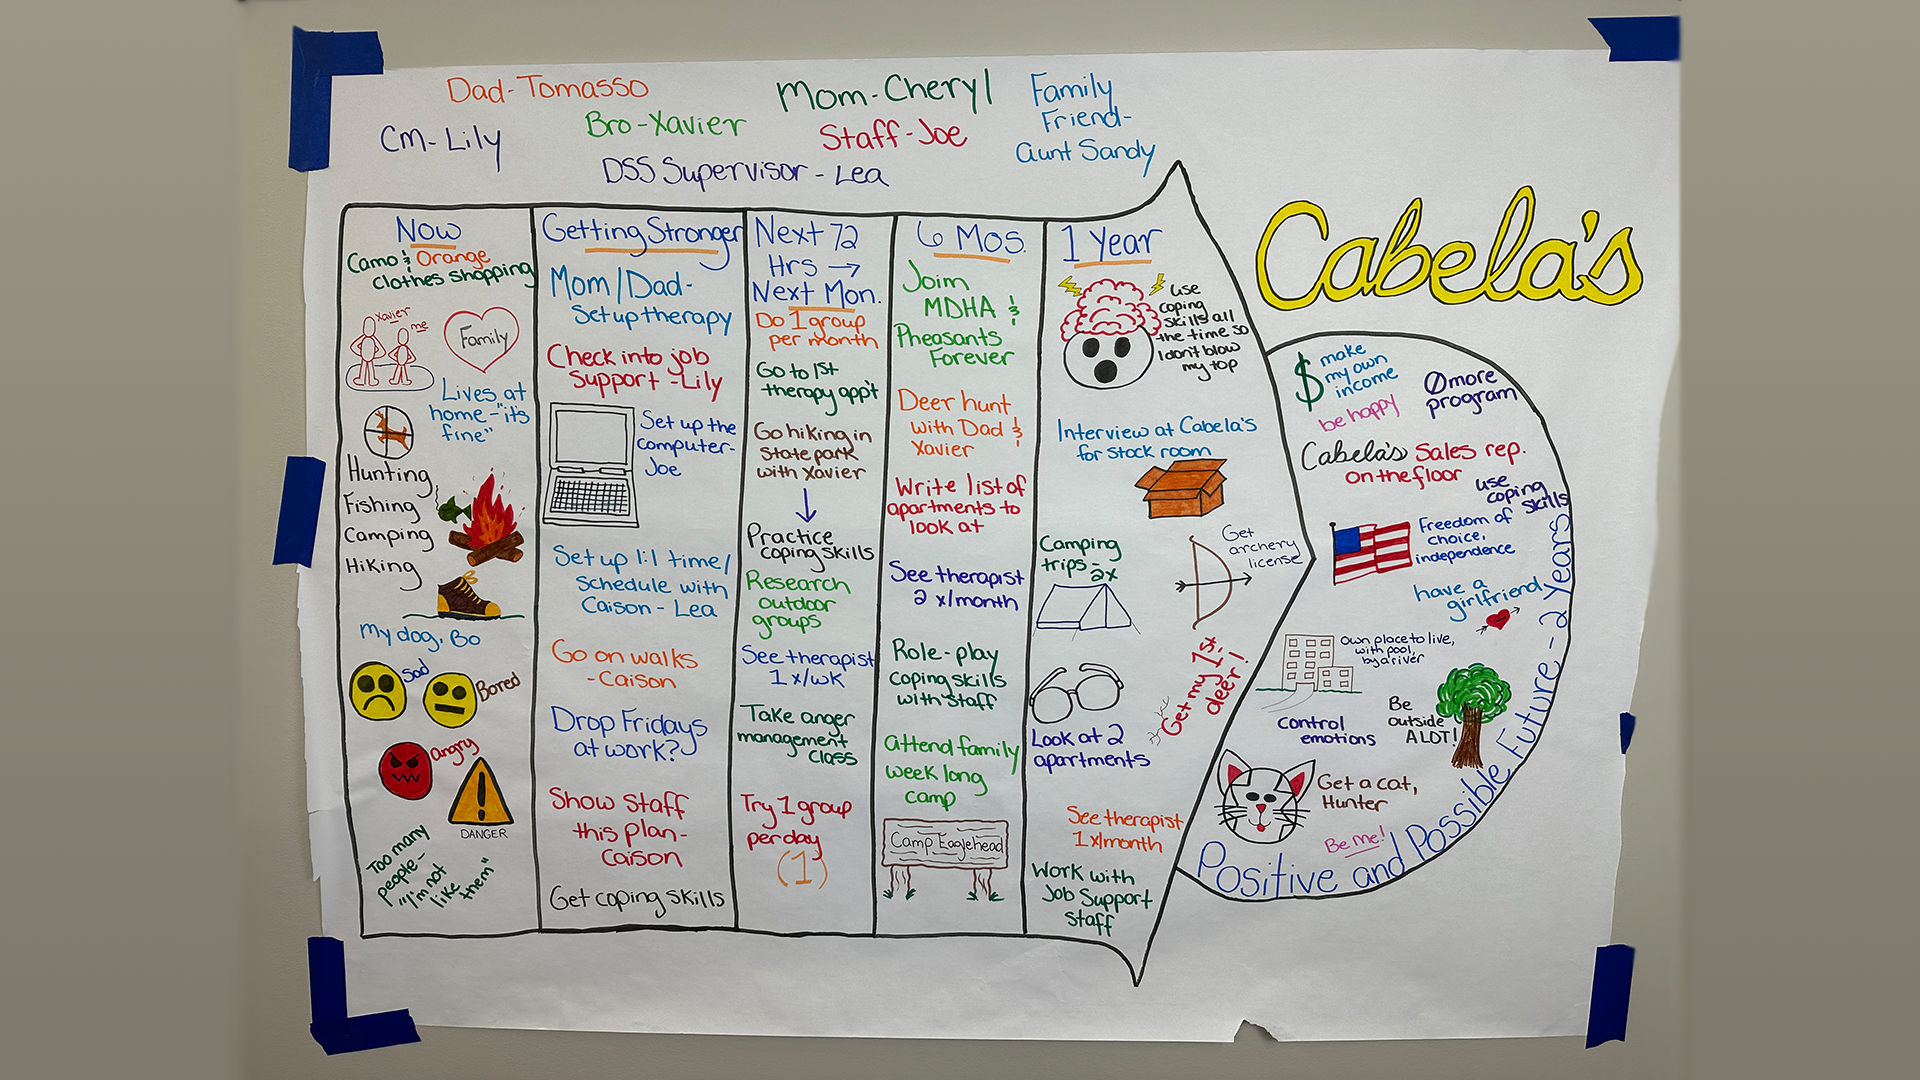 Dad-Tomasso
Mom-Cheryl
Family
Friend-
Aunt Sandy
CM-Lily
Bro-Xavier
Staff-Joe
DSS Supervisor - Lea
Now
Camo & Orange
Clothes Shopping
Xavier
me
Family
Lives at
home-"it's
fine"
Hunting
Fishing
Camping
Hiking
My dog, Bo
Sad
Bored
angry
DANGER
Too many
people-
"I'm not
like
them"
Getting Stronger
Mom/Dad-
Set up therapy
Check into job
Support -Lily
Set up the
computer-
Joe
Set up 1:1 time/
Schedule with
Caison- Lea
Go on walks
-Caison
Drop Fridays
at work?
Show Staff
this plan-
Caison
Get coping skills
Next 72
Hrs →
Next Mon.
Do 1 group
per month
Go to 1st
therapy app't
Go hiking in
State park
with Xavier
Practice
coping skills
Research
outdoor
groups
See therapist
1x/wk
Take anger
management
class
Try 1 group
per day
(1)
6 Mos.
Join
MDHA &
Pheasants
Forever
Deer hunt
with Dad &
Xavier
Write list of
apartments to
look at
See therapist
2x/month
Role-play
coping skills
with staff
Attend family
week long
camp
Camp Eaglehead
1 Year
use
coping
skills all
the time so
I don't blow
my top
Interview at Cabela's
for stock room
Camping
trips-
2x
Get
archery
license
Get my 1st
deer!
Look at 2
apartments
See therapist
1x/month
Work with
Job Support
Staff
Cabela's
$ make
my own
income
be happy
0 more
program
Cabela's Sales rep.
on the floor
use
coping
skills
Freedom of
choice,
independence
have a
girlfriend
Own place to live,
with pool,
by a river
control
emotions
Be
outside
A LOT!
Get a cat,
Hunter
Be me!
Positive and Possible Future - 2 Years